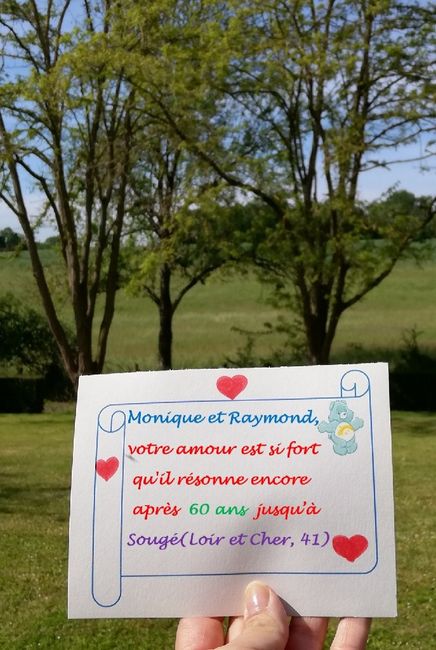 Monique et Raymond,
votre amour est si fort
qu'il résonne encore
après 60 ans jusqu'à
Sougé(Loir et Cher, 41)